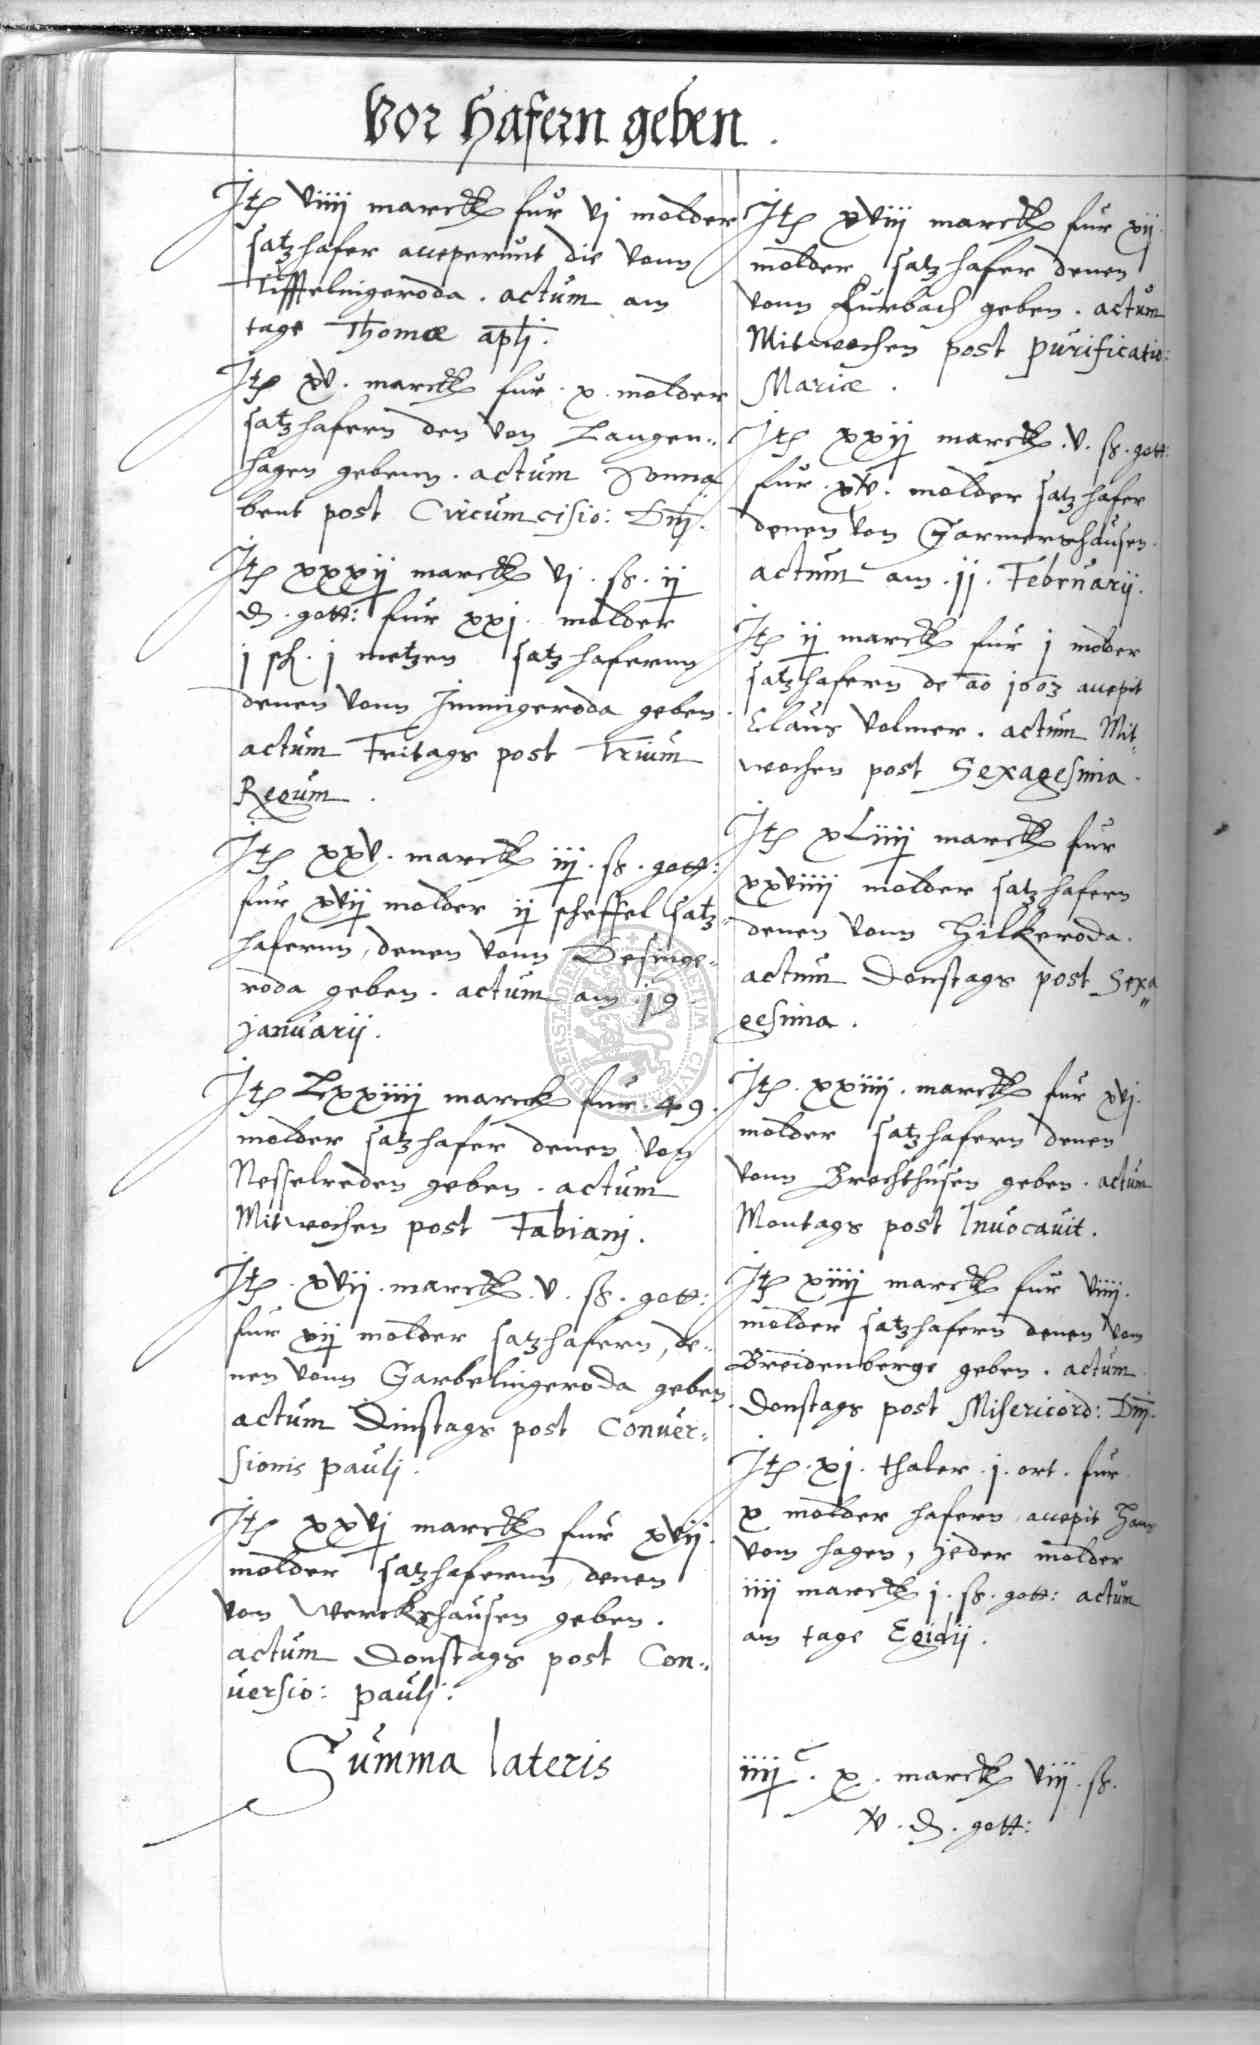 Vor Hafern geben.
Itꝫ viiij marckꝫ fur vj molder
satzhafer acceperunt die vonn
Tifftelingeroda. actum am
tage Thomæ apli:
Itꝫ xv. marckꝫ fur. x. molder
satzhafern den von Langen„
hagen gebenn. actum Sonna
bent post Circumcisio: Dnj.
Itꝫ xxxij marckꝫ vj. ß. ij
₰. gott: fur xxj. molder
j sch. j metzen satzhafernn
denen vonn Immigeroda geben.
actum Fritags post Trium
Regum.
Itꝫ xxv. marckꝫ iij. ß. gott:
fur xvij molder ij scheffel satz„
hafernn, denen vonn Desinge„
roda geben. actum am. j9.
januarij.
Itꝫ Lxxiiij marck fur. 49.
molder satzhafer denen von
Nesselreden geben. actum
Mitwochen post Fabianj.
Itꝫ. xvij. marckꝫ. v. ß. gott:
fur xij molder satzhafern, de„
nen vonn Garbelingeroda geben.
actum Dinstags post Conver„
sionis paulj.
Itꝫ xxvj marckꝫ fur xvij.
molder satzhafernn, denen
von Werckshausen geben.
actum Donstags post Con„
versio: paulj:
Summa lateris
Itꝫ xviij marckꝫ fur xij.
molder satzhafer denen
vonn Furbach geben. actum
Mitwochen post purificatio:
Mariæ.
Itꝫ xxij marckꝫ. v. ß. gott:
fur. xv. molder satzhafer
denen von Germershausen.
actum am. jj. Februarij.
Itꝫ ij marckꝫ fur j molder
satzhafern de ao j603 accepit
Claus Volmer. actum Mit„
wochen post Sexagesima.
Itꝫ xLiiij marckꝫ fur
xxviiij molder satzhafern
denen vonn Hilkeroda.
actum Donstags post Sexa„
gesima.
Itꝫ. xxiiij. marckꝫ fur xvj.
molder satzhafern denen
vonn Brochthusen geben. actum
Montags post Invocavit.
Itꝫ xiiij marckꝫ fur viiij.
molder satzhafern denen vom
Breidenberge geben. actum
Donstags post Misericord: Dnj.
Itꝫ. xj. thaler. j. ort. fur
x molder hafern accepit Hans
vom hagen, jeder molder
iiij marckꝫ j. ß. gott: actum
am tage Egidij.
iiij c. x. marckꝫ viij. ß.
v. ₰. gott: